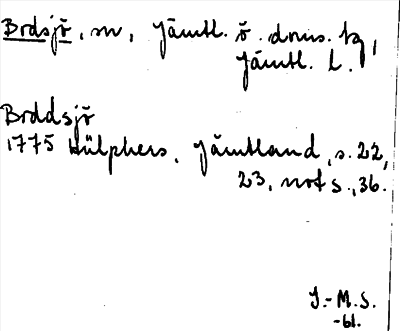 Brdsjö, sn, Jämtl. ö. doms. tg,
Jämtl. l.
Broddsjö
1775 Hülphers, Jämtland, s. 22,
23, not s., 36.
J.-M.S.
-61.